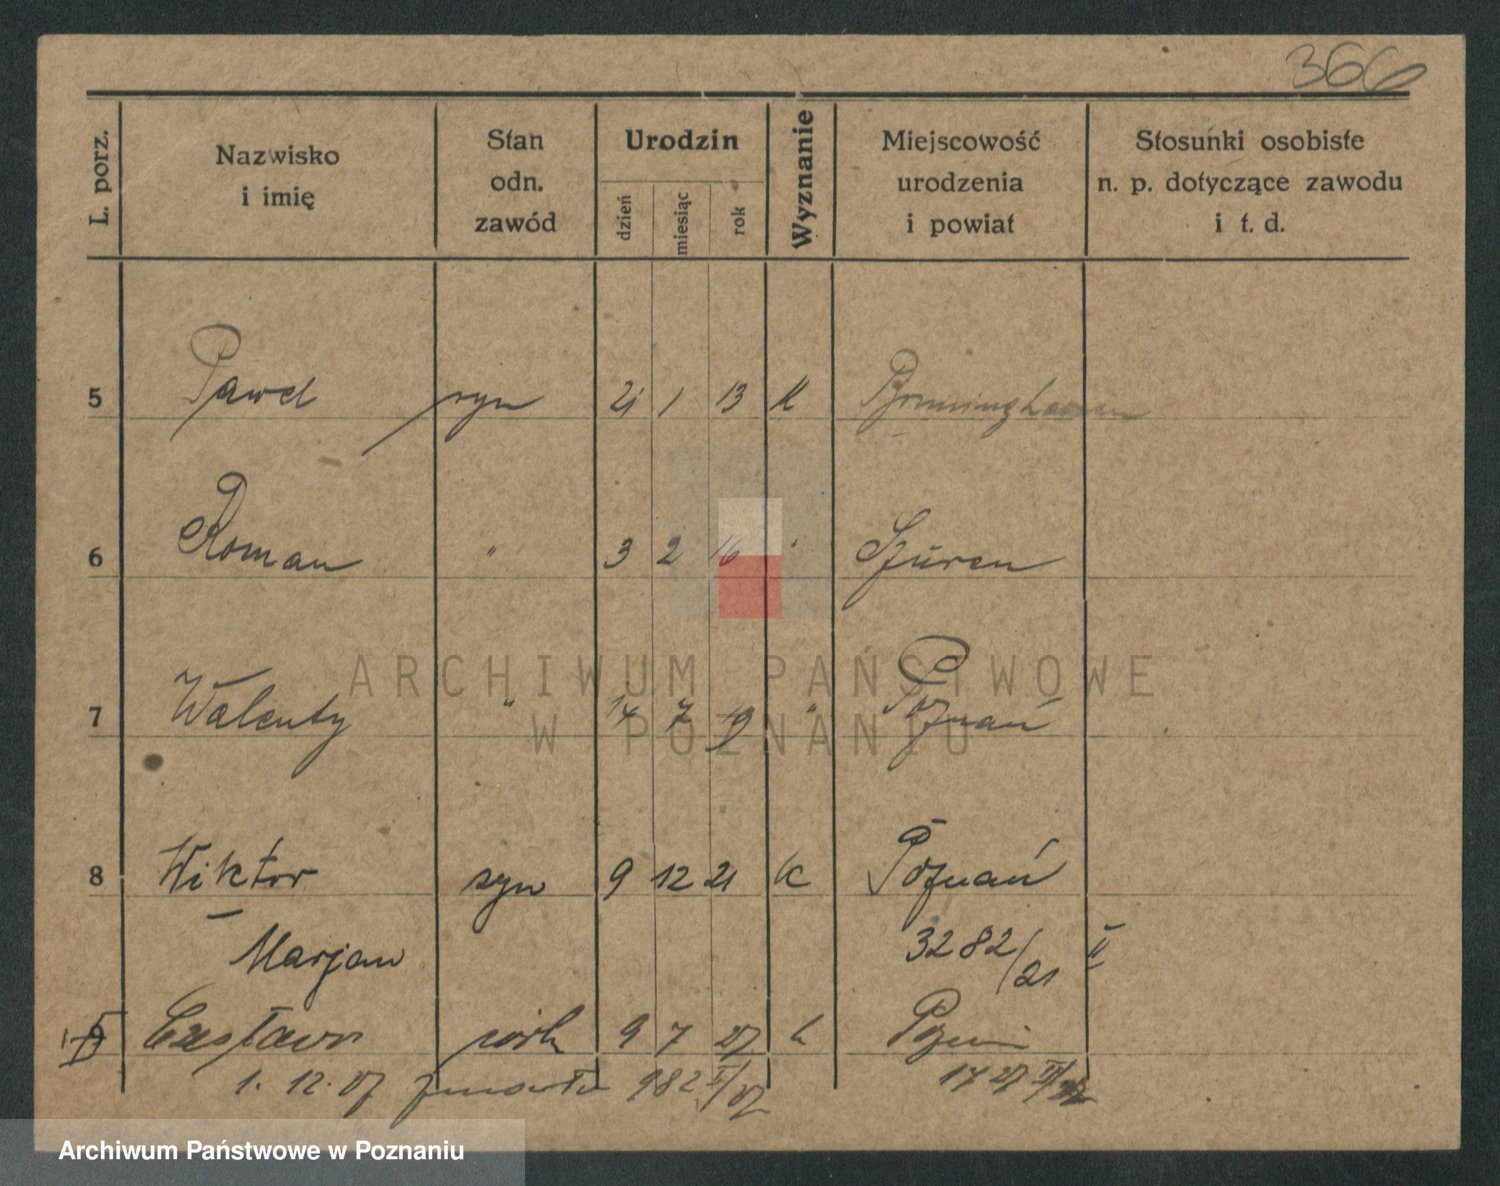 366
L. porz. Nazwisko i imię Stan odn. zawód Urodzin dzień miesiąc rok Wyznanie Miejscowość urodzenia i powiat Stosunki osobiste n. p. dotyczące zawodu i t. d.
5 Paweł syn 21 1 13 K
6 Roman " 3 2 16 " Szüren
7 Walenty " 14 7 19 " Poznań
ARCHIWUM PAŃSTWOWE
W POZNANIU
8 Wiktor syn 9 12 21 K Poznań
Marjan 3282/21 II
9 9 7 27 k
1. 12. 27 982
Archiwum Państwowe w Poznaniu